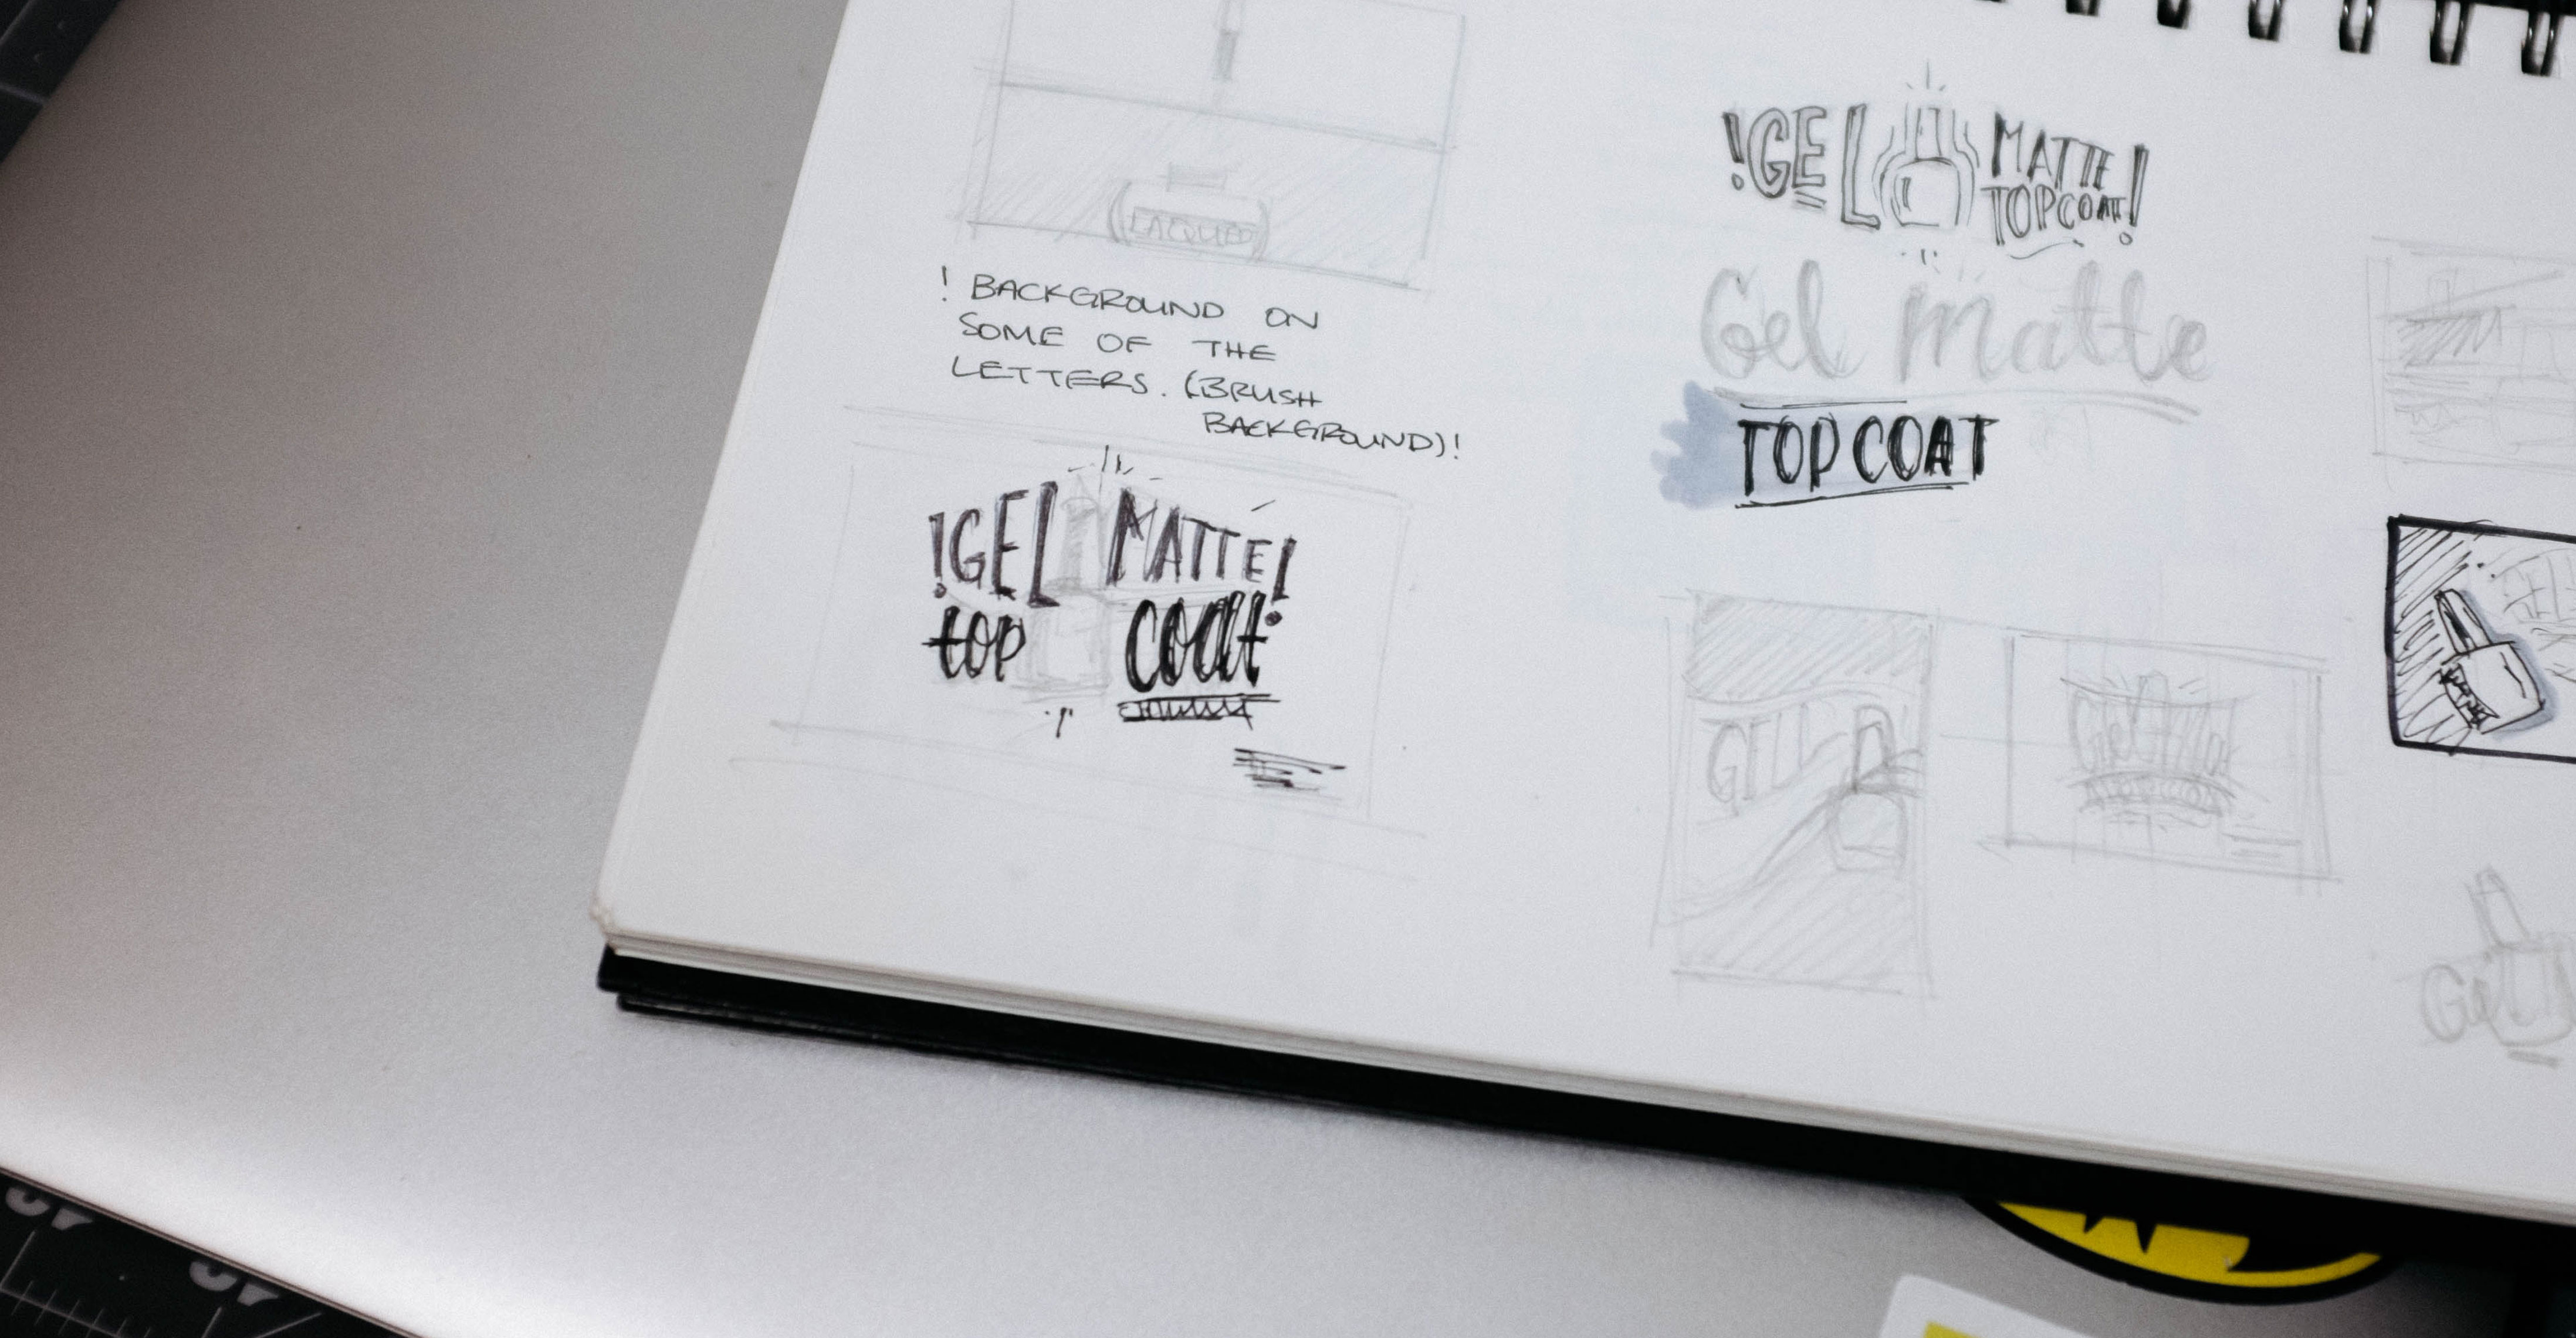 LACQUER
! BACKGROUND ON
SOME OF THE
LETTERS. (BRUSH
BACKGROUND)!
!GEL MATTE!
top coat
!GEL MATTE
TOPCOAT!
Gel matte
TOP COAT
GEL
Gel